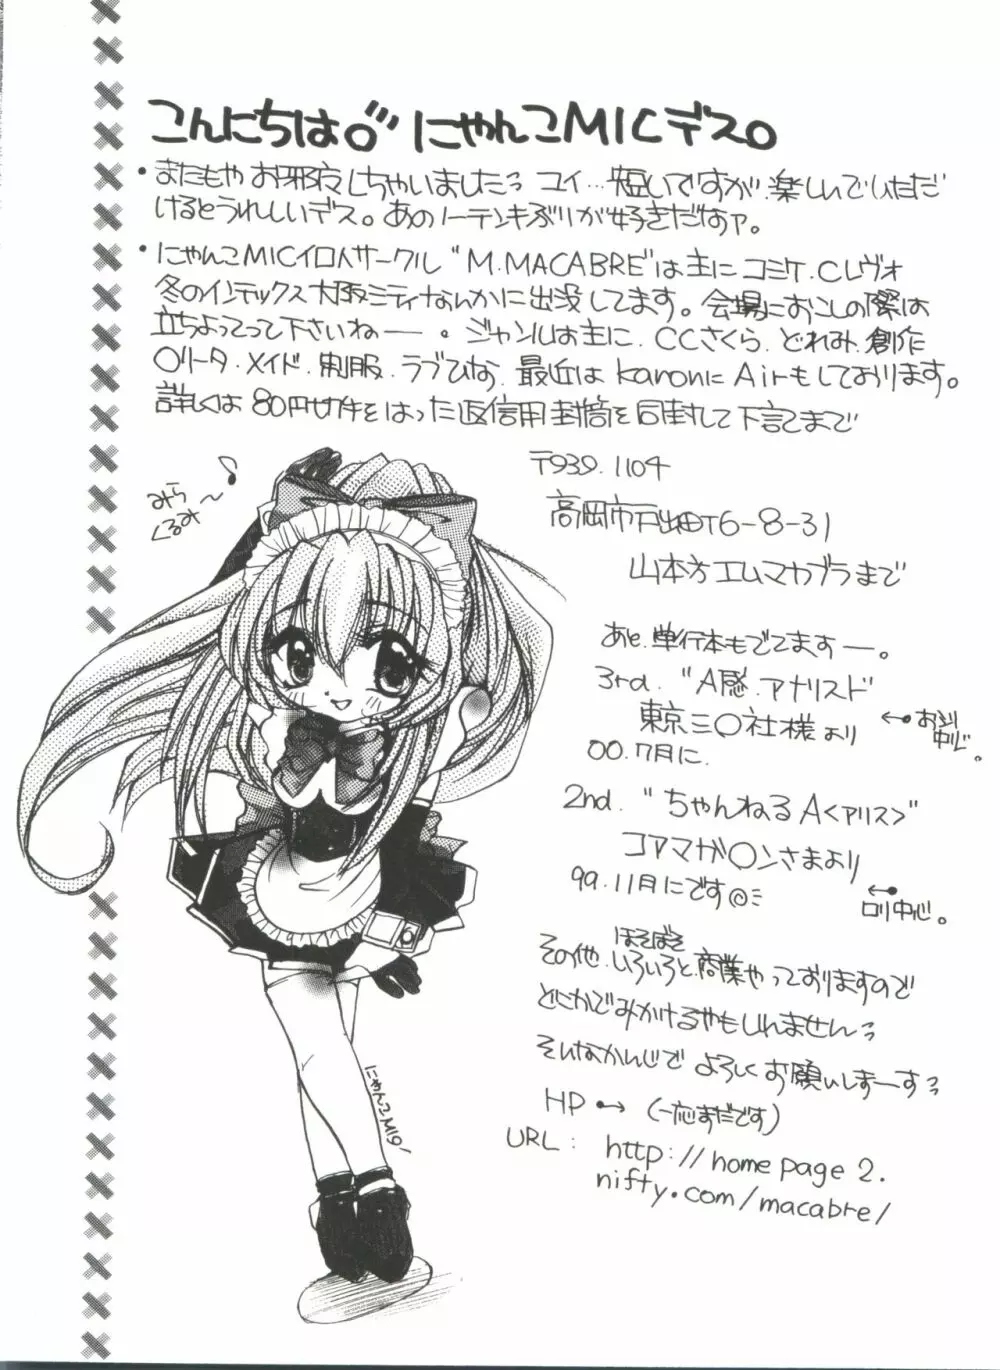 こんにちは。にゃんこMICデス。
・またもやお邪魔しちゃいましたっ コイ…短いですが、楽しんでいただ
けるとうれしいデス。あのノーテンキぶりが好きだなァ。
・にゃんこMIC イロ人サークル "M.MACABRE"は主にコミケ.Cレヴォ
冬のインテックス大阪シティなんかに出没してます。会場におこしの際は
立ちよってって下さいねー。ジャンルは主に、CCさくら.どれみ.創作
〇リータ.メイド.制服.ラブひな.最近はkanonにAirもしております。
詳しくは80円切手をはった返信用封筒を同封して下記まで
みらくるみ〜♪
〒939.1104
高岡市戸出町6-8-31
山本方エムマカブラまで
あと.単行本もでてますー。
3rd. "A感.アナリスト"
東京三〇社様より
00.7月に.
2nd. "ちゃんねるA<アリス>"
コアマガ〇ンさまより
99.11月にです@ミ
←・ロリ中心。
ほそぼそ
その他.いろいろと.商業やっておりますので
どこかでみかけるやもしれませんっ
そんなかんじで よろしくお願いしまーすっ
にゃんこMIC
HP ・→ (一応まだです)
URL: http://homepage2.
nifty.com/macabre/